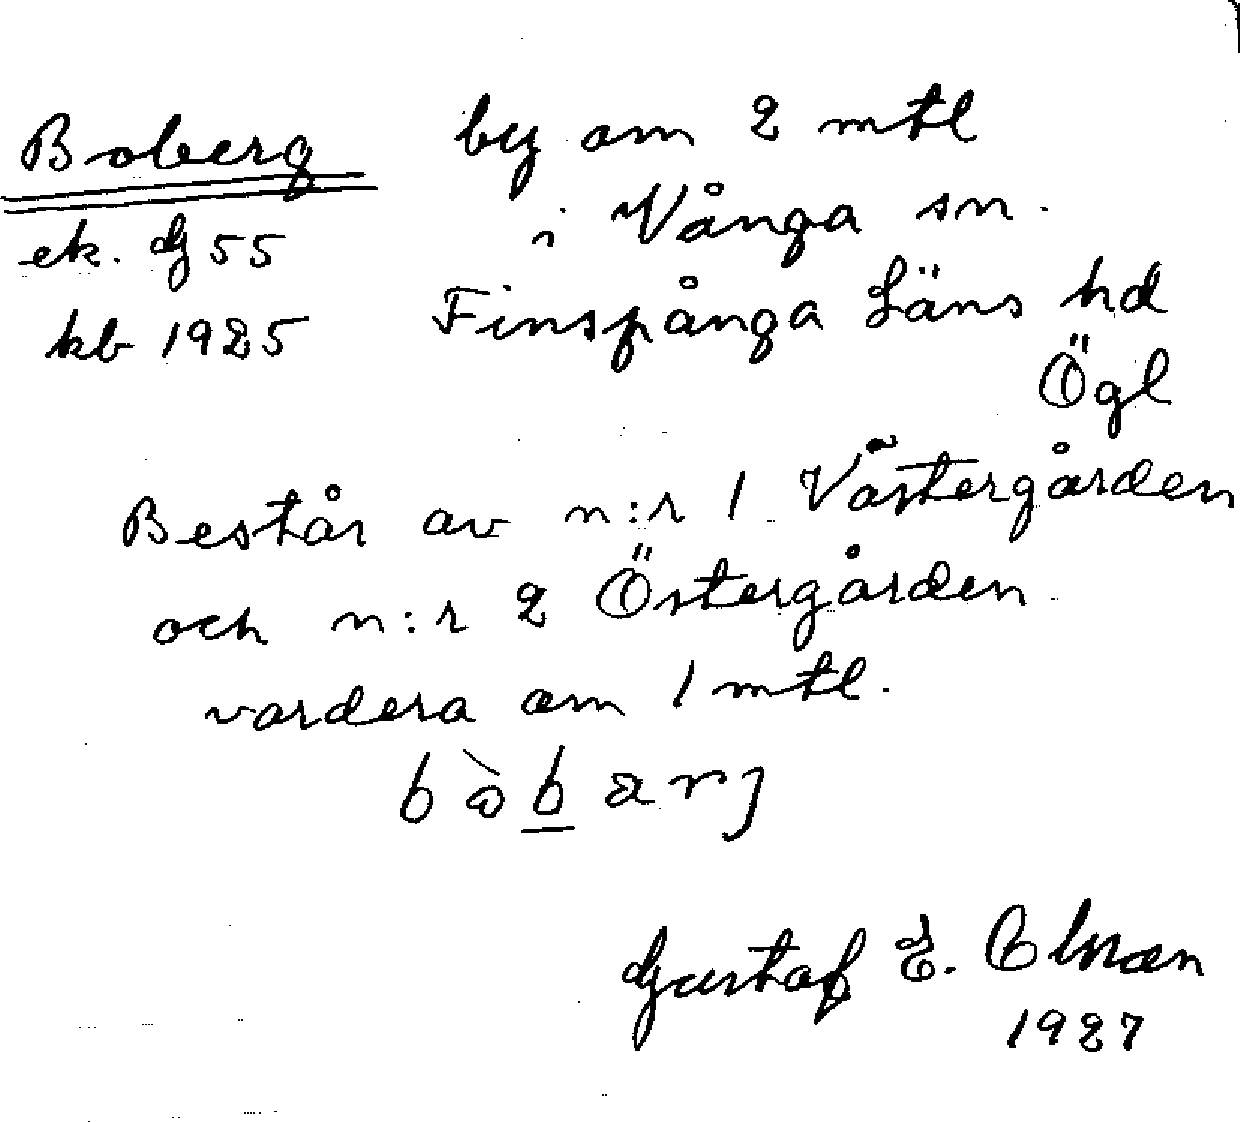 Boberg by om 2 mtl
ek. dj 55 i Vånga sn.
kb 1925 Finspånga Läns hd
Ögl
Består av n:r 1 Västergården
och n:r 2 Östergården
vardera om 1 mtl.
bòbarj
Gustaf E. Olsson
1927